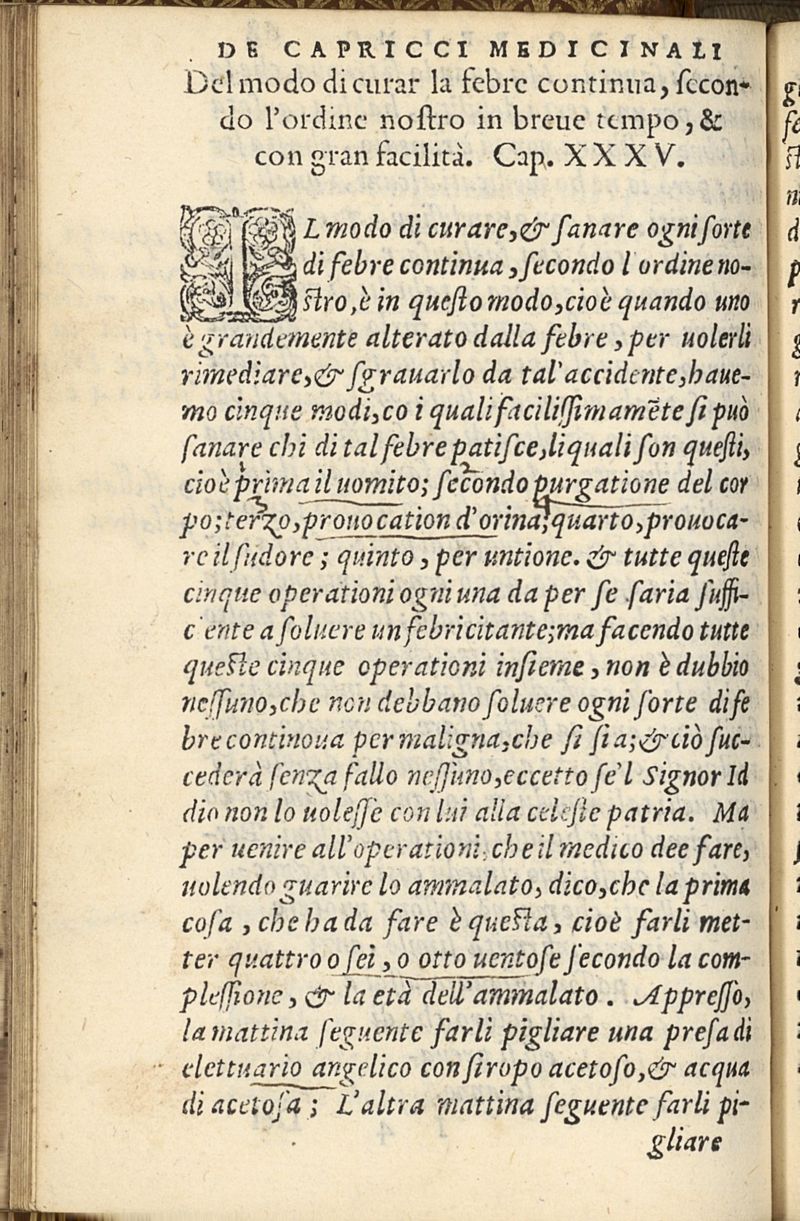 DE CAPRICCI MEDICINALI
Del modo di curar la febre continua, ſecon-
do l'ordine noſtro in breue tempo, &
con gran facilità. Cap. XXXV.
IL modo di curare, & ſanare ogni ſorte
di febre continua, ſecondo l'ordine no-
ſtro, è in queſto modo, cioè quando uno
è grandemente alterato dalla febre, per uolerli
rimediare, & ſgrauarlo da tal'accidente, haue-
mo cinque modi, co i quali faciliſſimamẽte ſi può
ſanare chi di tal febre patiſce, li quali ſon queſti,
cioè prima il uomito; ſecondo purgatione del cor
po; terzo, prouocation d'orina; quarto, prouoca-
re il ſudore; quinto, per untione. & tutte queſte
cinque operationi ogni una da per ſe ſaria ſuffi-
ciente a ſoluere un febricitante; ma facendo tutte
queſte cinque operationi inſieme, non è dubbio
neſſuno, che non debbano ſoluere ogni ſorte di fe
bre continoua per maligna, che ſi ſia; & ciò ſuc-
cederà ſenza fallo neſſuno, eccetto ſe'l Signor Id
dio non lo uoleſſe con lui alla celeſte patria. Ma
per uenire all'operationi, che il medico dee fare,
uolendo guarire lo ammalato, dico, che la prima
coſa, che ha da fare è queſta, cioè farli met-
ter quattro o ſei, o otto uentoſe ſecondo la com-
pleſſione, & la età dell'ammalato. Appreſſo,
la mattina ſeguente farli pigliare una preſa di
elettuario angelico con ſiropo acetoſo, & acqua
di acetoſa; L'altra mattina ſeguente farli pi-
gliare